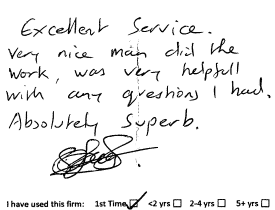 Excellent Service.
Very nice man did the
work, was very helpfull
with any questions I had.
Absolutely Superb.
I have used this firm: 1st Time ☑ <2 yrs ☐ 2-4 yrs ☐ 5+ yrs ☐